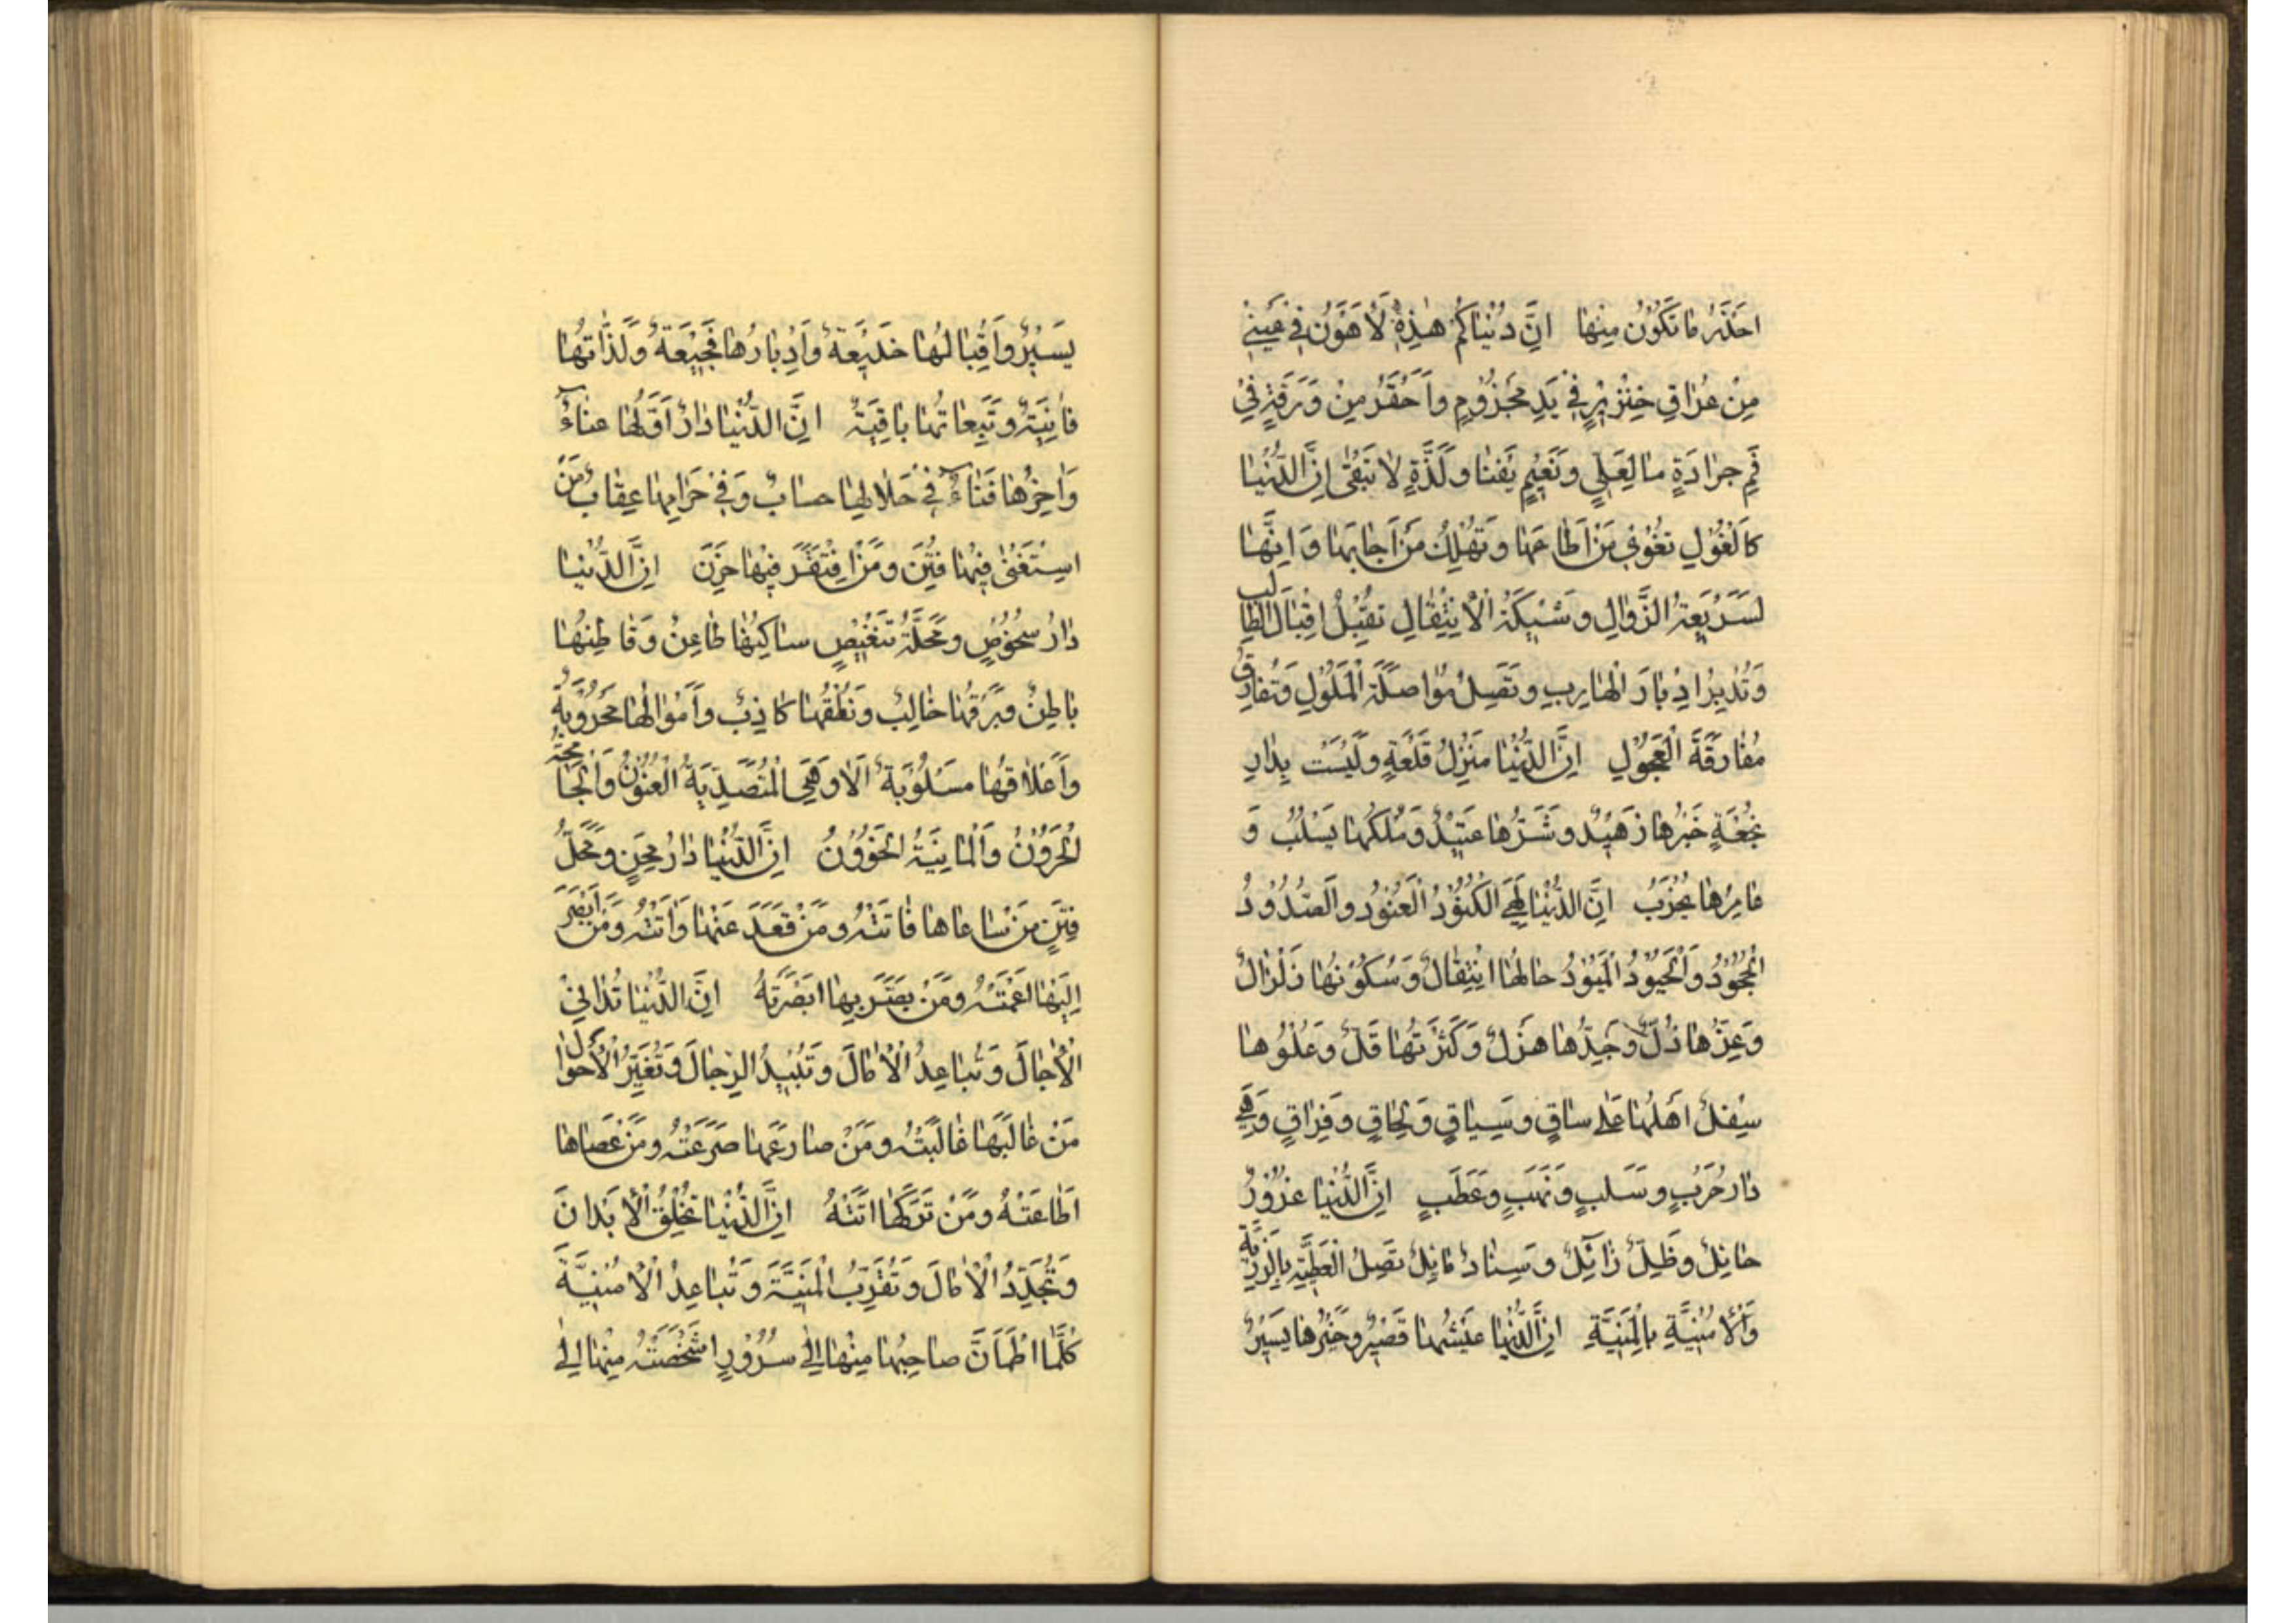 احْذَرُ مَا تَكُونُ مِنْهَا اِنَّ دُنْيَاكُمْ هٰذِهِ لَاَهْوَنُ فِي عَيْنِي
مِنْ عُرَاقِ خِنْزِيْرٍ فِيْ يَدِ مَجْزُوْمٍ وَاَحْقَرُ مِنْ وَرَقَةٍ فِيْ
فَمِ جَرَادَةٍ مَا لِعَلِيٍّ وَنَعِيْمٍ يَفْنَا وَلَذَّةٍ لَا تَبْقٰى اِنَّ الدُّنْيَا
كَالْغُوْلِ تُغْوِيْ مَنْ اَطَاعَهَا وَتُهْلِكُ مَنْ اَجَابَهَا وَاِنَّهَا
لَسَرِيْعَةُ الزَّوَالِ وَشَيْكَةُ الْاِنْتِقَالِ تُقْبِلُ اِقْبَالَ الطَّالِبِ
وَتُدْبِرُ اِدْبَارَ الْهَارِبِ وَتَصِلُ مُوَاصَلَةَ الْمَلُوْلِ وَتُفَارِقُ
مُفَارَقَةَ الْعَجُوْلِ اِنَّ الدُّنْيَا مَنْزِلُ قَلْعَةٍ وَلَيْسَتْ بِدَارِ
نُجْعَةٍ خَيْرُهَا زَهِيْدٌ وَشَرُّهَا عَتِيْدٌ وَمُلْكُهَا يُسْلَبُ وَ
عَامِرُهَا يُخْرَبُ اِنَّ الدُّنْيَا لَهِيَ الْكَنُوْدُ الْعَنُوْدُ وَالصَّدُوْدُ
الْجَحُوْدُ وَالْحَيُوْدُ الْمَيُوْدُ حَالُهَا اِنْتِقَالٌ وَسُكُوْنُهَا زَلْزَالٌ
وَعِزُّهَا ذُلٌّ وَجِدُّهَا هَزْلٌ وَكَثْرَتُهَا قُلٌّ وَعُلُوُّهَا
سِفْلٌ اَهْلُهَا عَلٰى سَاقٍ وَسِيَاقٍ وَلِحَاقٍ وَفِرَاقٍ وَهِيَ
دَارُ حَرَبٍ وَسَلَبٍ وَنَهَبٍ وَعَطَبٍ اِنَّ الدُّنْيَا غُرُوْرٌ
حَائِلٌ وَظِلٌّ زَائِلٌ وَسِنَادٌ مَائِلٌ تَصِلُ الْعَطِيَّةَ بِالرَّزِيَّةِ
وَالْاُمْنِيَّةِ بِالْمَنِيَّةِ اِنَّ الدُّنْيَا عَيْشُهَا قَصِيْرٌ وَخَيْرُهَا يَسِيْرٌ
يَسِيْرٌ وَاِقْبَالُهَا خَدِيْعَةٌ وَاِدْبَارُهَا فَجِيْعَةٌ وَلَذَّاتُهَا
فَانِيَةٌ وَتَبِعَاتُهَا بَاقِيَةٌ اِنَّ الدُّنْيَا دَارٌ اَوَّلُهَا عَنَاءٌ
وَاٰخِرُهَا فَنَاءٌ فِيْ حَلَالِهَا حِسَابٌ وَفِيْ حَرَامِهَا عِقَابٌ مَنْ
اسْتَغْنٰى فِيْهَا فُتِنَ وَمَنْ افْتَقَرَ فِيْهَا حَزِنَ اِنَّ الدُّنْيَا
دَارُ شُخُوْصٍ وَمَحَلَّةُ تَنْغِيْصٍ سَاكِنُهَا ظَاعِنٌ وَقَاطِنُهَا
بَاطِنٌ وَبَرْقُهَا خَالِبٌ وَنُطْقُهَا كَاذِبٌ وَاَمْوَالُهَا مَحْرُوْبَةٌ
وَاَعْلَاقُهَا مَسْلُوْبَةٌ اَلَا وَهِيَ الْمُتَصَدِّيَةُ الْعَنُوْنُ وَالْجَامِحَةُ
الْحَرُوْنُ وَالْمَايِنَةُ الْخَؤُوْنُ اِنَّ الدُّنْيَا دَارُ مِحَنٍ وَمَحَلُّ
فِتَنٍ مَنْ سَاعَاهَا فَاتَتْهُ وَمَنْ قَعَدَ عَنْهَا وَاتَتْهُ وَمَنْ اَبْصَرَ
اِلَيْهَا اَعْمَتْهُ وَمَنْ بَصَّرَ بِهَا ابَصْرَتْهُ اِنَّ الدُّنْيَا تُدَانِيْ
الْاٰجَالَ وَتُبَاعِدُ الْاٰمَالَ وَتُبِيْدُ الرِّجَالَ وَتُغَيِّرُ الْاَحْوَالَ
مَنْ غَالَبَهَا غَالَبَتْهُ وَمَنْ صَارَعَهَا صَرَعَتْهُ وَمَنْ عَصَاهَا
اَطَاعَتْهُ وَمَنْ تَرَكَهَا اَتَتْهُ اِنَّ الدُّنْيَا تُخْلِقُ الْاَبْدَانَ
وَتُجَدِّدُ الْاٰمَالَ وَتُقَرِّبُ الْمَنِيَّةَ وَتُبَاعِدُ الْاُمْنِيَّةَ
كُلَّمَا اطْمَاَنَّ صَاحِبُهَا مِنْهَا اِلٰى سُرُوْرٍ اَشْخَصَتْهُ مِنْهَا اِلٰى